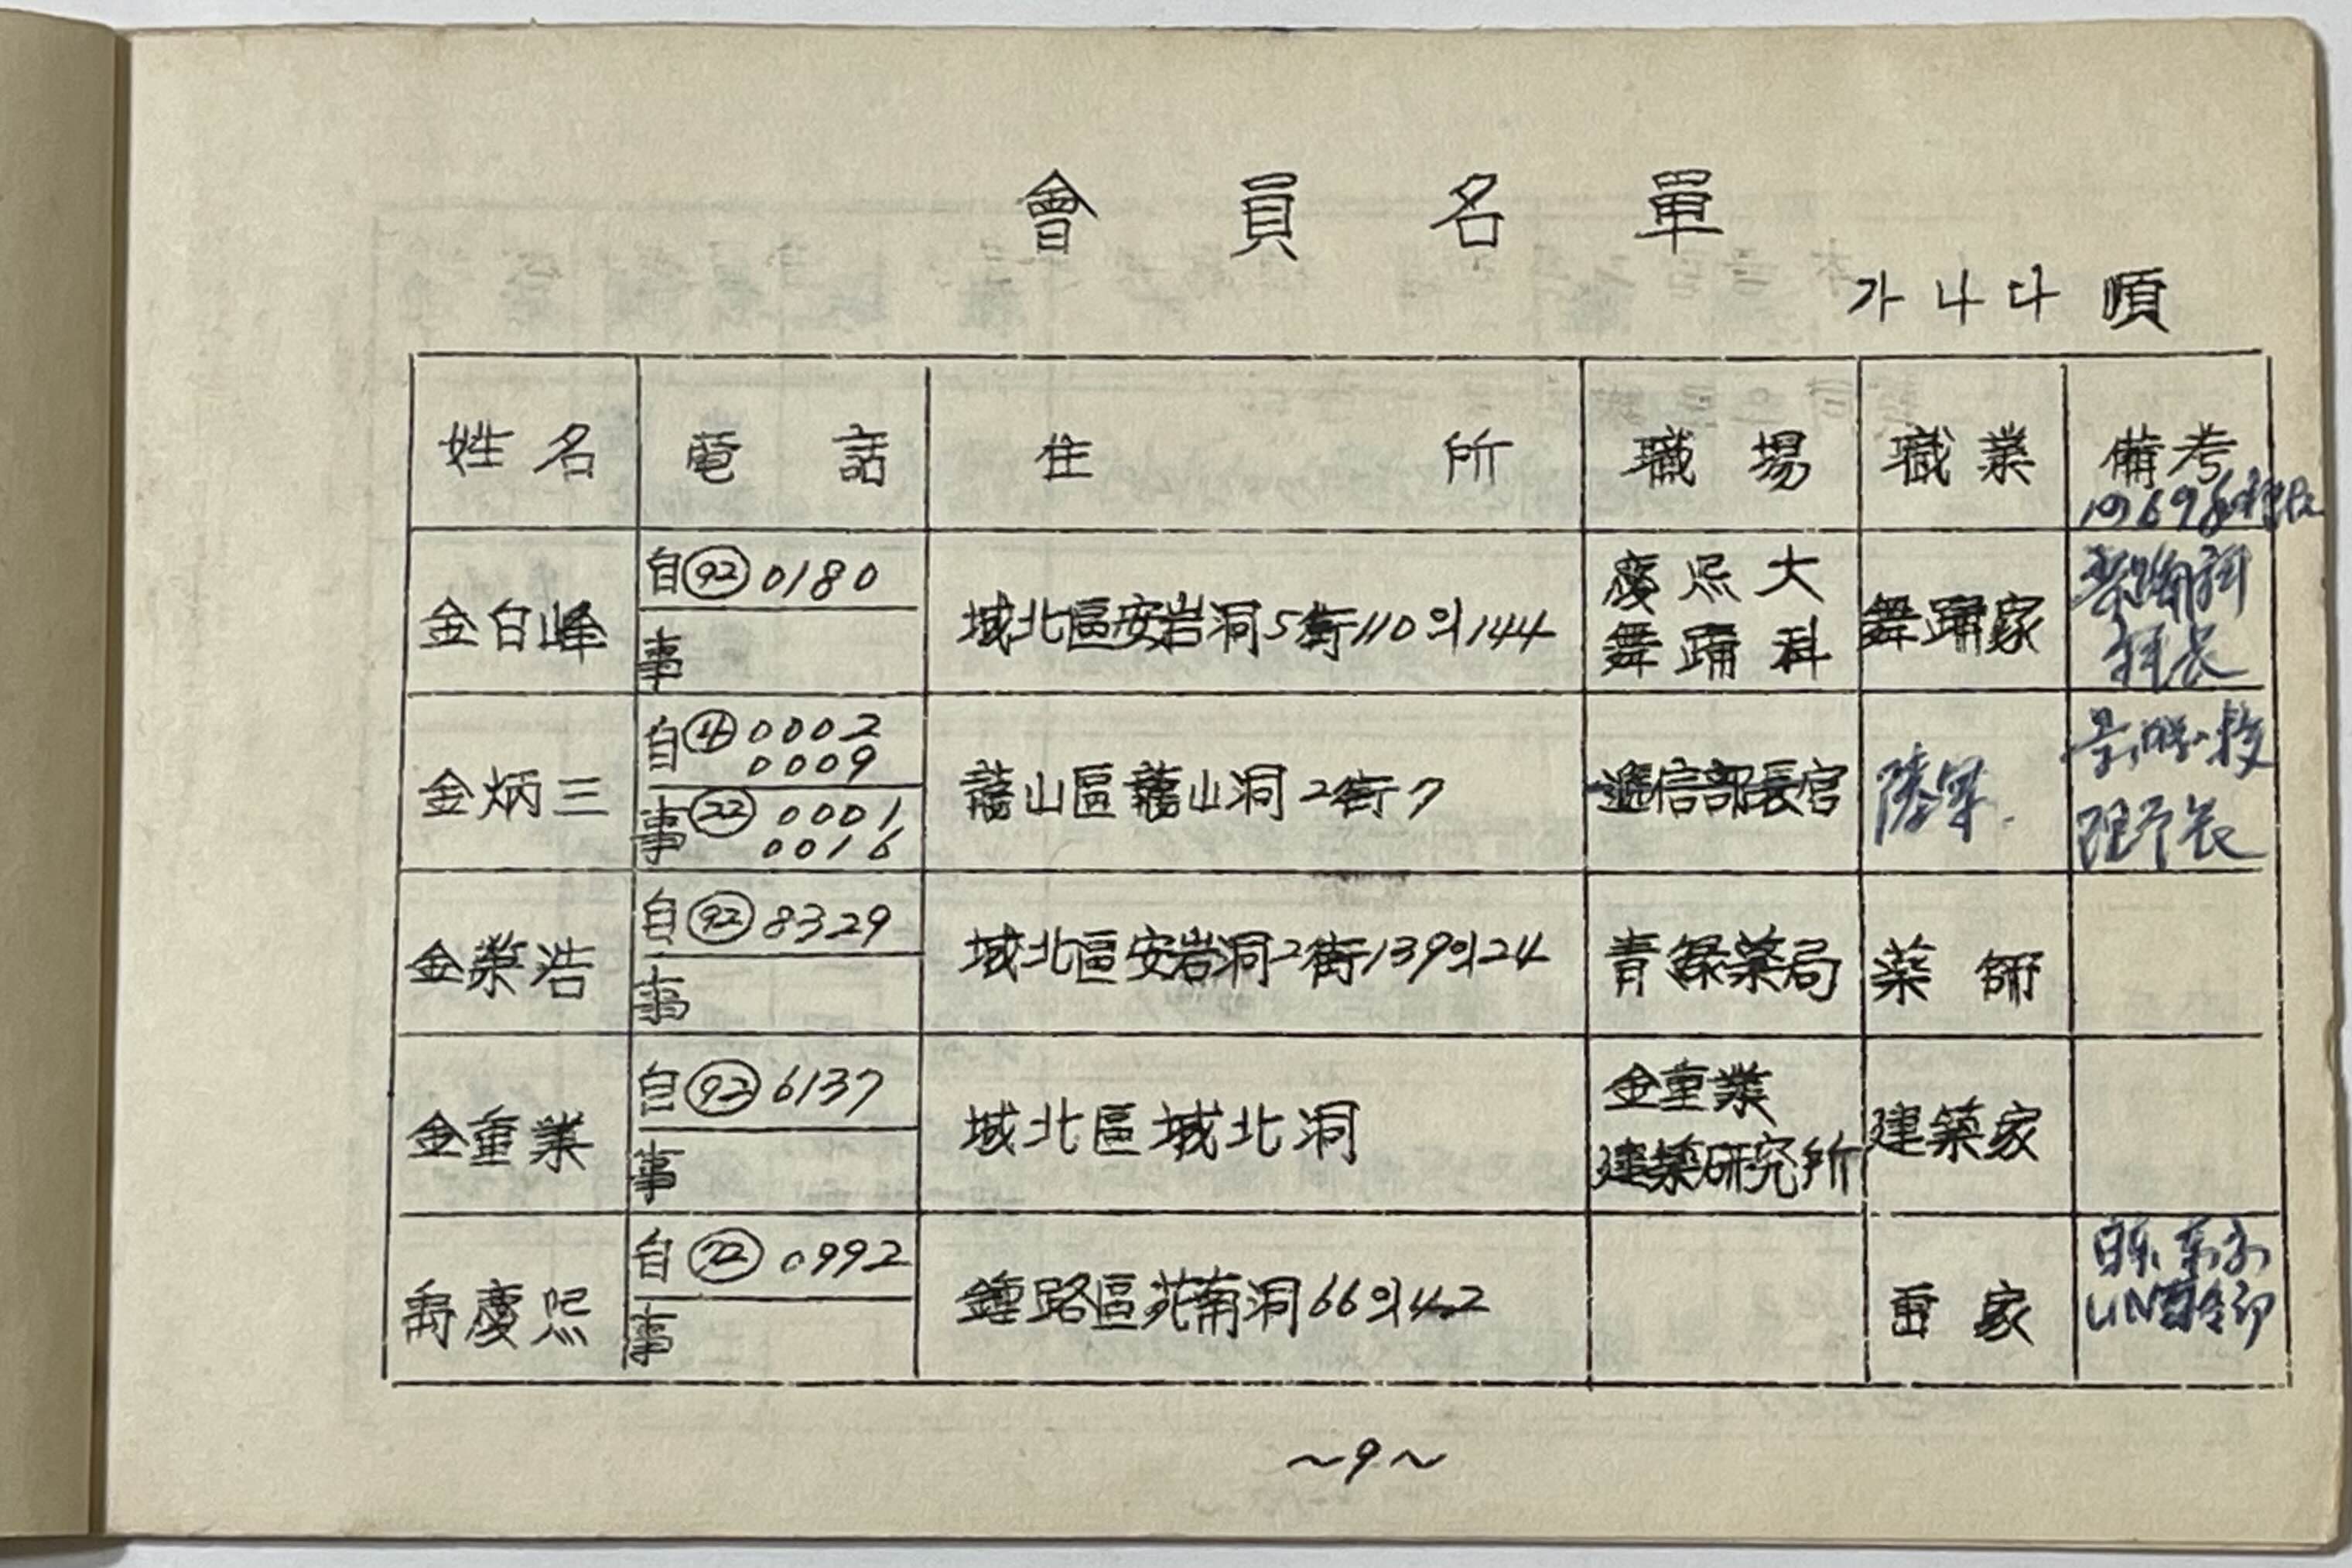 會員名單
가나다 順
姓名 電話 住所 職場 職業 備考
1969
金白峰 自 ㉒ 0180 城北區安岩洞5街110의144 慶熙大 舞踊家
事 舞踊科 科長
金炳三 自 ④ 0002 龍山區龍山洞2街7 遞信部長官 陸軍
0009
事 ㉒ 0001 理事長
0016
金榮浩 自 92 8329 城北區安岩洞2街139의24 青綠薬局 薬師
事
金重業 自 92 6137 城北區城北洞 金重業 建築家
事 建築研究所
禹慶熙 自 72 0992 鍾路區苑南洞66의42 畫家
事 UN
~9~